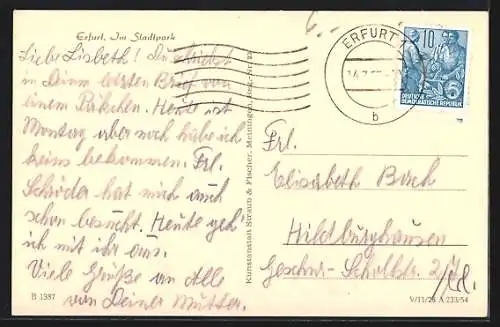 Erfurt, Im Stadtpark
Liebe Lisbeth! Du schriebst
in Deinem letzten Brief von
einem Päckchen. Heute ist
Montag aber noch habe ich
keins bekommen. Frl.
Schröder hat mich auch
schon besucht. Heute geh
ich mit ihr aus.
Viele Grüße an Alle
von Deiner Mutter.
B 1387
Kunstanstalt Straub & Fischer, Meiningen
ERFURT
b
10
DEUTSCHE
DEMOKRATISCHE REPUBLIK
Frl.
Elisabeth
Hildburghausen
V/11/28 A 233/54